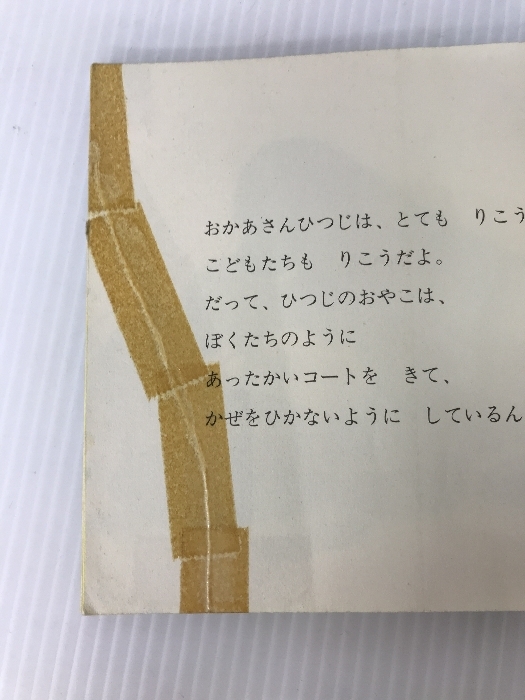 おかあさんひつじは、とても　りこう
こどもたちも　りこうだよ。
だって、ひつじのおやこは、
ぼくたちのように
あったかいコートを　きて、
かぜをひかないように　しているん